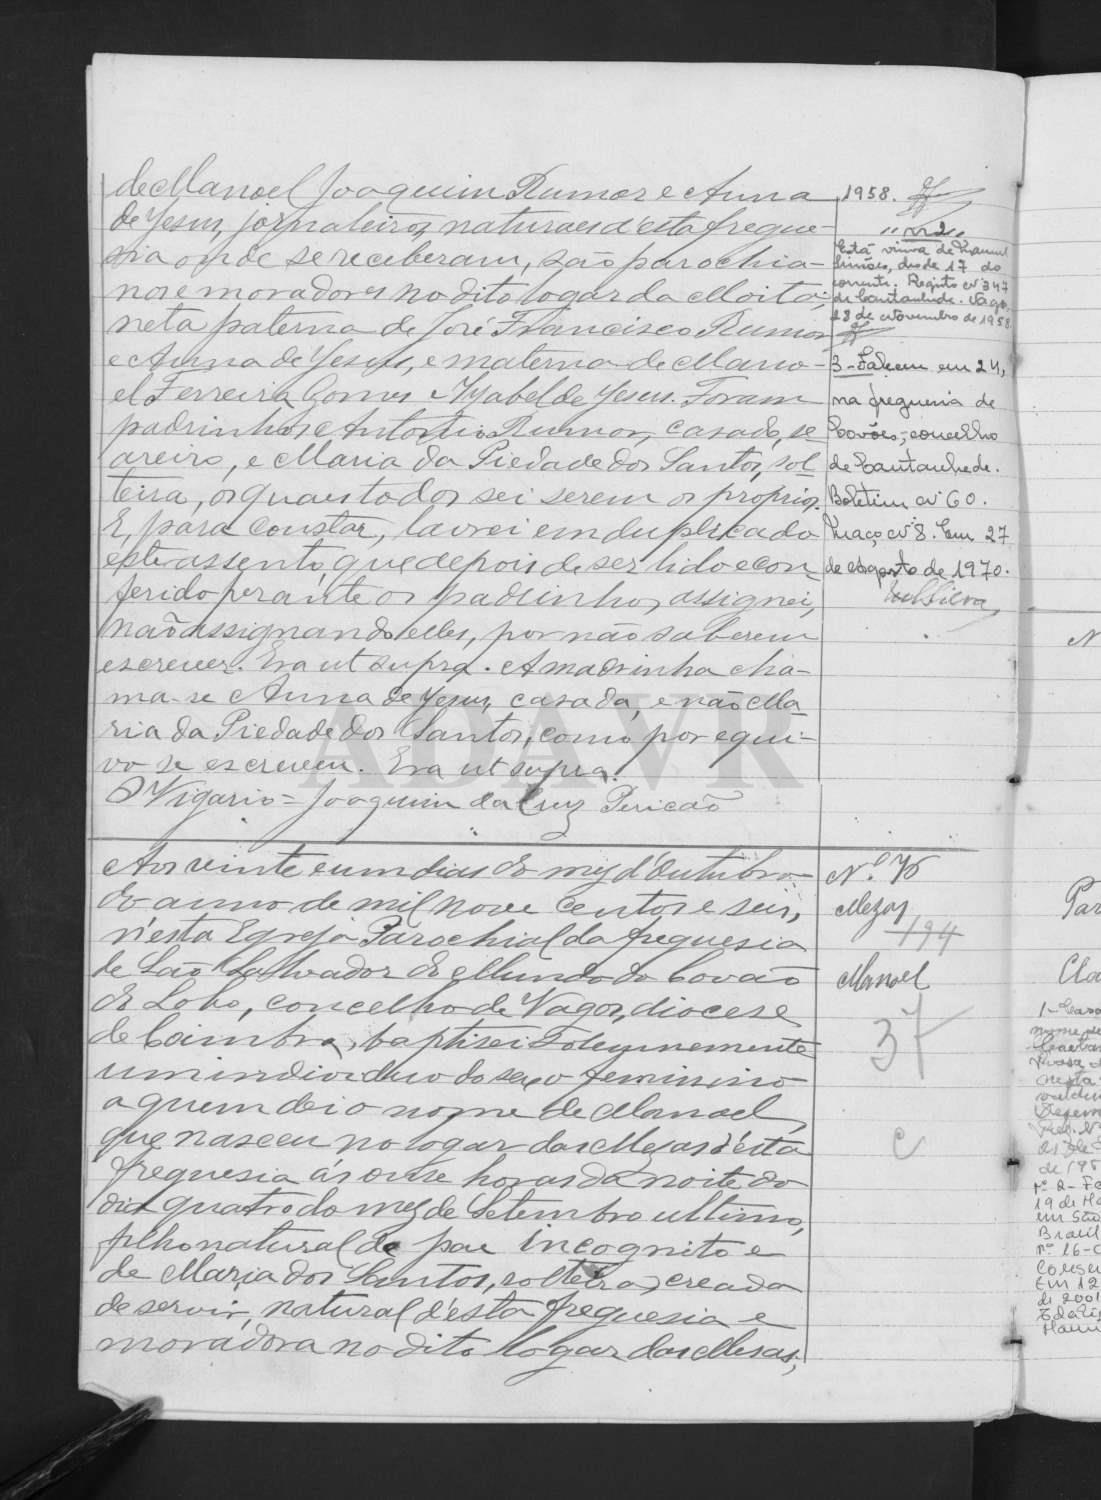 de Manoel Joaquim Rumor e Anna
de Jesus, jornaleiros, naturaes d'esta fregue-
sia onde se receberam, são parochia-
nos e moradores no dito logar da Moita;
neta paterna de José Francisco Rumor
e Anna de Jesus, e materna de Mano-
el Ferreira Gomes e Ysabel de Jesus. Foram
padrinhos Antonio Rumor, casado, se
areiro, e Maria da Piedade dos Santos, sol
teira, os quaes todos sei serem os proprios.
E, para constar, lavrei em duplicado
este assento, que depois de ser lido e con-
ferido perante os padrinhos, assignei,
não assignando elles, por não saberem
escrever. Era ut supra. A madrinha cha-
ma-se Anna de Jesus, casada, e não Ma
ria da Piedade dos Santos, como por equi-
vo se escreveu. Era ut supra.
O Vigario = Joaquim da Cruz Pericão
1958.
"nº 2"
Está viuva de Manuel
Simões, desde 17 do
corrente. Registo nº 347
de Cantanhede. Vagos,
28 de Novembro de 1958.
3 - Faleceu em 24,
na freguesia de
Covões, concelho
de Cantanhede.
Boletim nº 60.
Maço nº 8. Em 27
de Agosto de 1970.
Aos vinte e um dias do mez d'Outubro
do anno de mil nove centos e seis,
n'esta Egreja Parochial da freguesia
de São Salvador do Mundo do Covão
do Lobo, concelho de Vagos, diocese
de Coimbra, baptisei solemnemente
um individuo do sexo feminino
a quem dei o nome de Manoel,
que nasceu no logar das Mezas d'esta
freguesia ás onse horas da noite do
dia quatro do mez de Setembro ultimo,
filho natural de pae incognito e
de Maria dos Santos, solteira, creada
de servir, natural d'esta freguesia e
moradora no dito logar das Mesas;
N.º 76
Mezas
194
Manoel
37
C
N
Par
Cla
nesta
de 195
19 de Ma
em São
Brasil
nº 16-
Em 12
de 2001